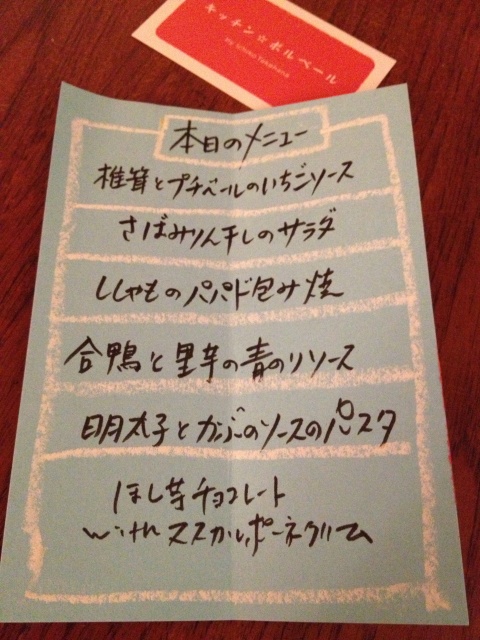 キッチン☆ボルベール
by Ichiho Takahana
本日のメニュー
椎茸とプチベールのいちごソース
さばみりん干しのサラダ
ししゃものパパド包み焼
合鴨と里芋の青のりソース
明太子とかぶのソースのパスタ
ほし芋チョコレート
with ススカルポーネクリーム